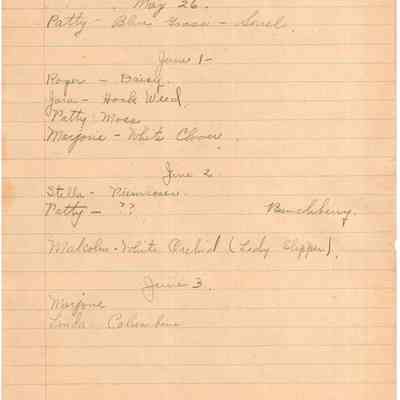 May 26.
Patty - Blue Grass - Sorrel
June 1 -
Roger - Daisy.
Jara - Hawk Weed.
Patty Moss
Marjorie - White Clover
June 2
Stella - Primrose
Patty - ?? Bunchberry.
Malcolm - White Orchid (Lady Slipper).
June 3.
Marjorie
Linda Columbine